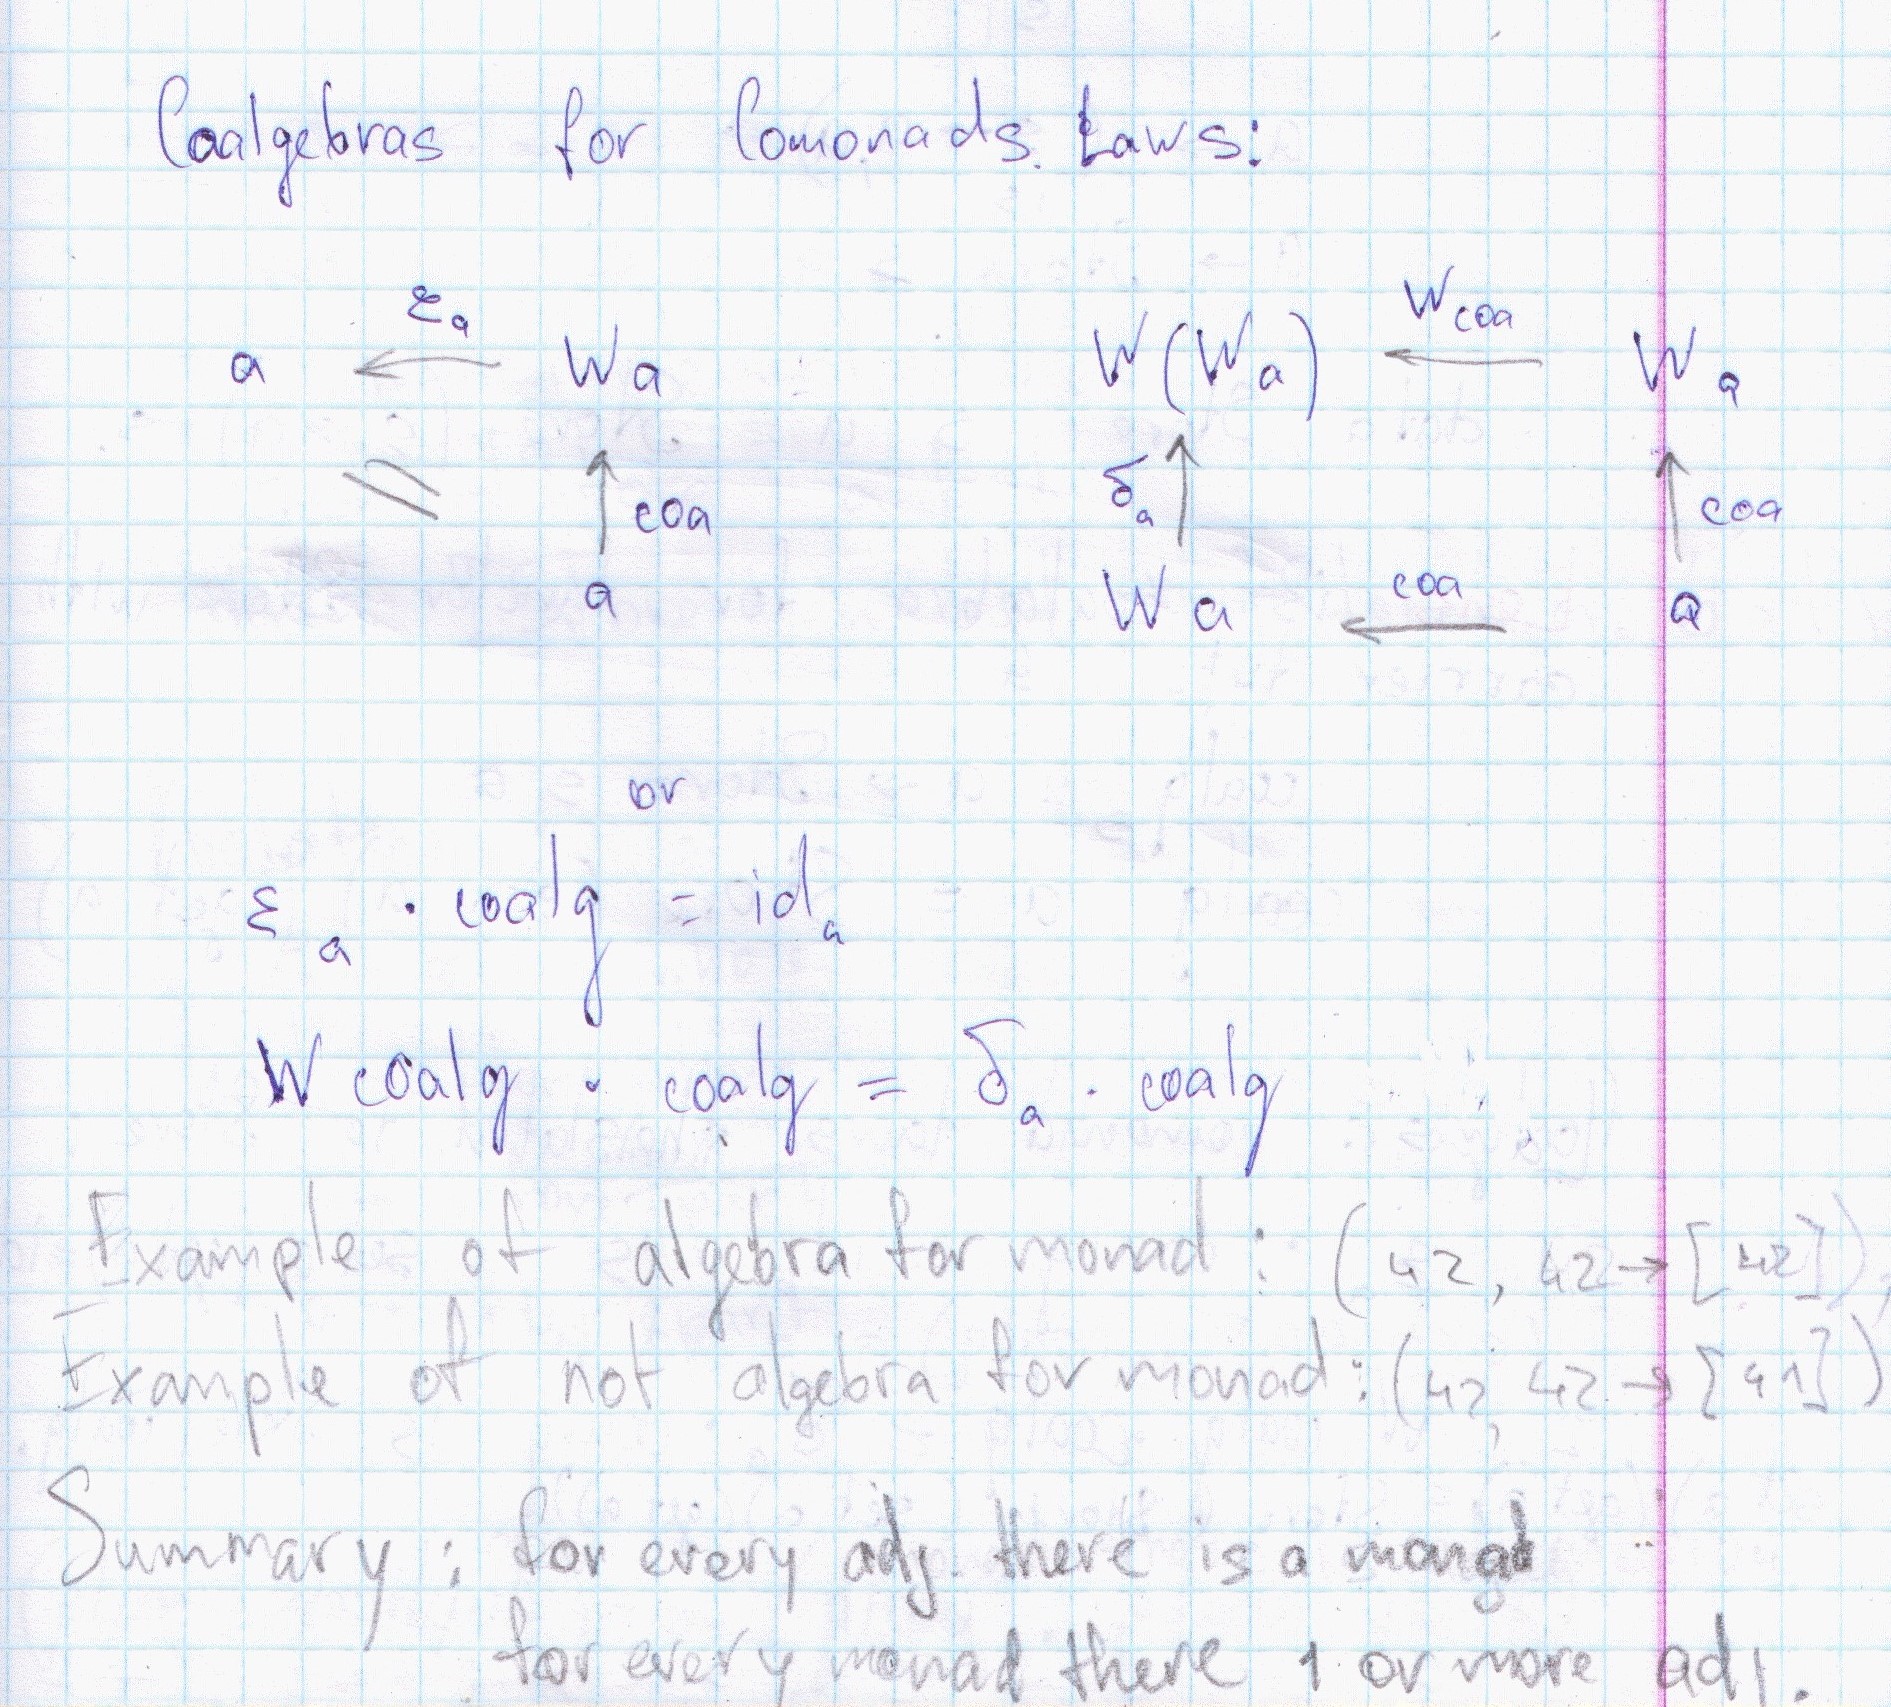 Coalgebras for Comonads. Laws:
εa
Wcoa
a Wa W(Wa) Wa
coa δa coa
a Wa coa a
or
εa · coalg = ida
W coalg · coalg = δa · coalg
Example of algebra for monad: (42, 42→[42]),
Example of not algebra for monad: (42, 42→[41])
Summary: for every adj. there is a monad
for every monad there 1 or more adj.